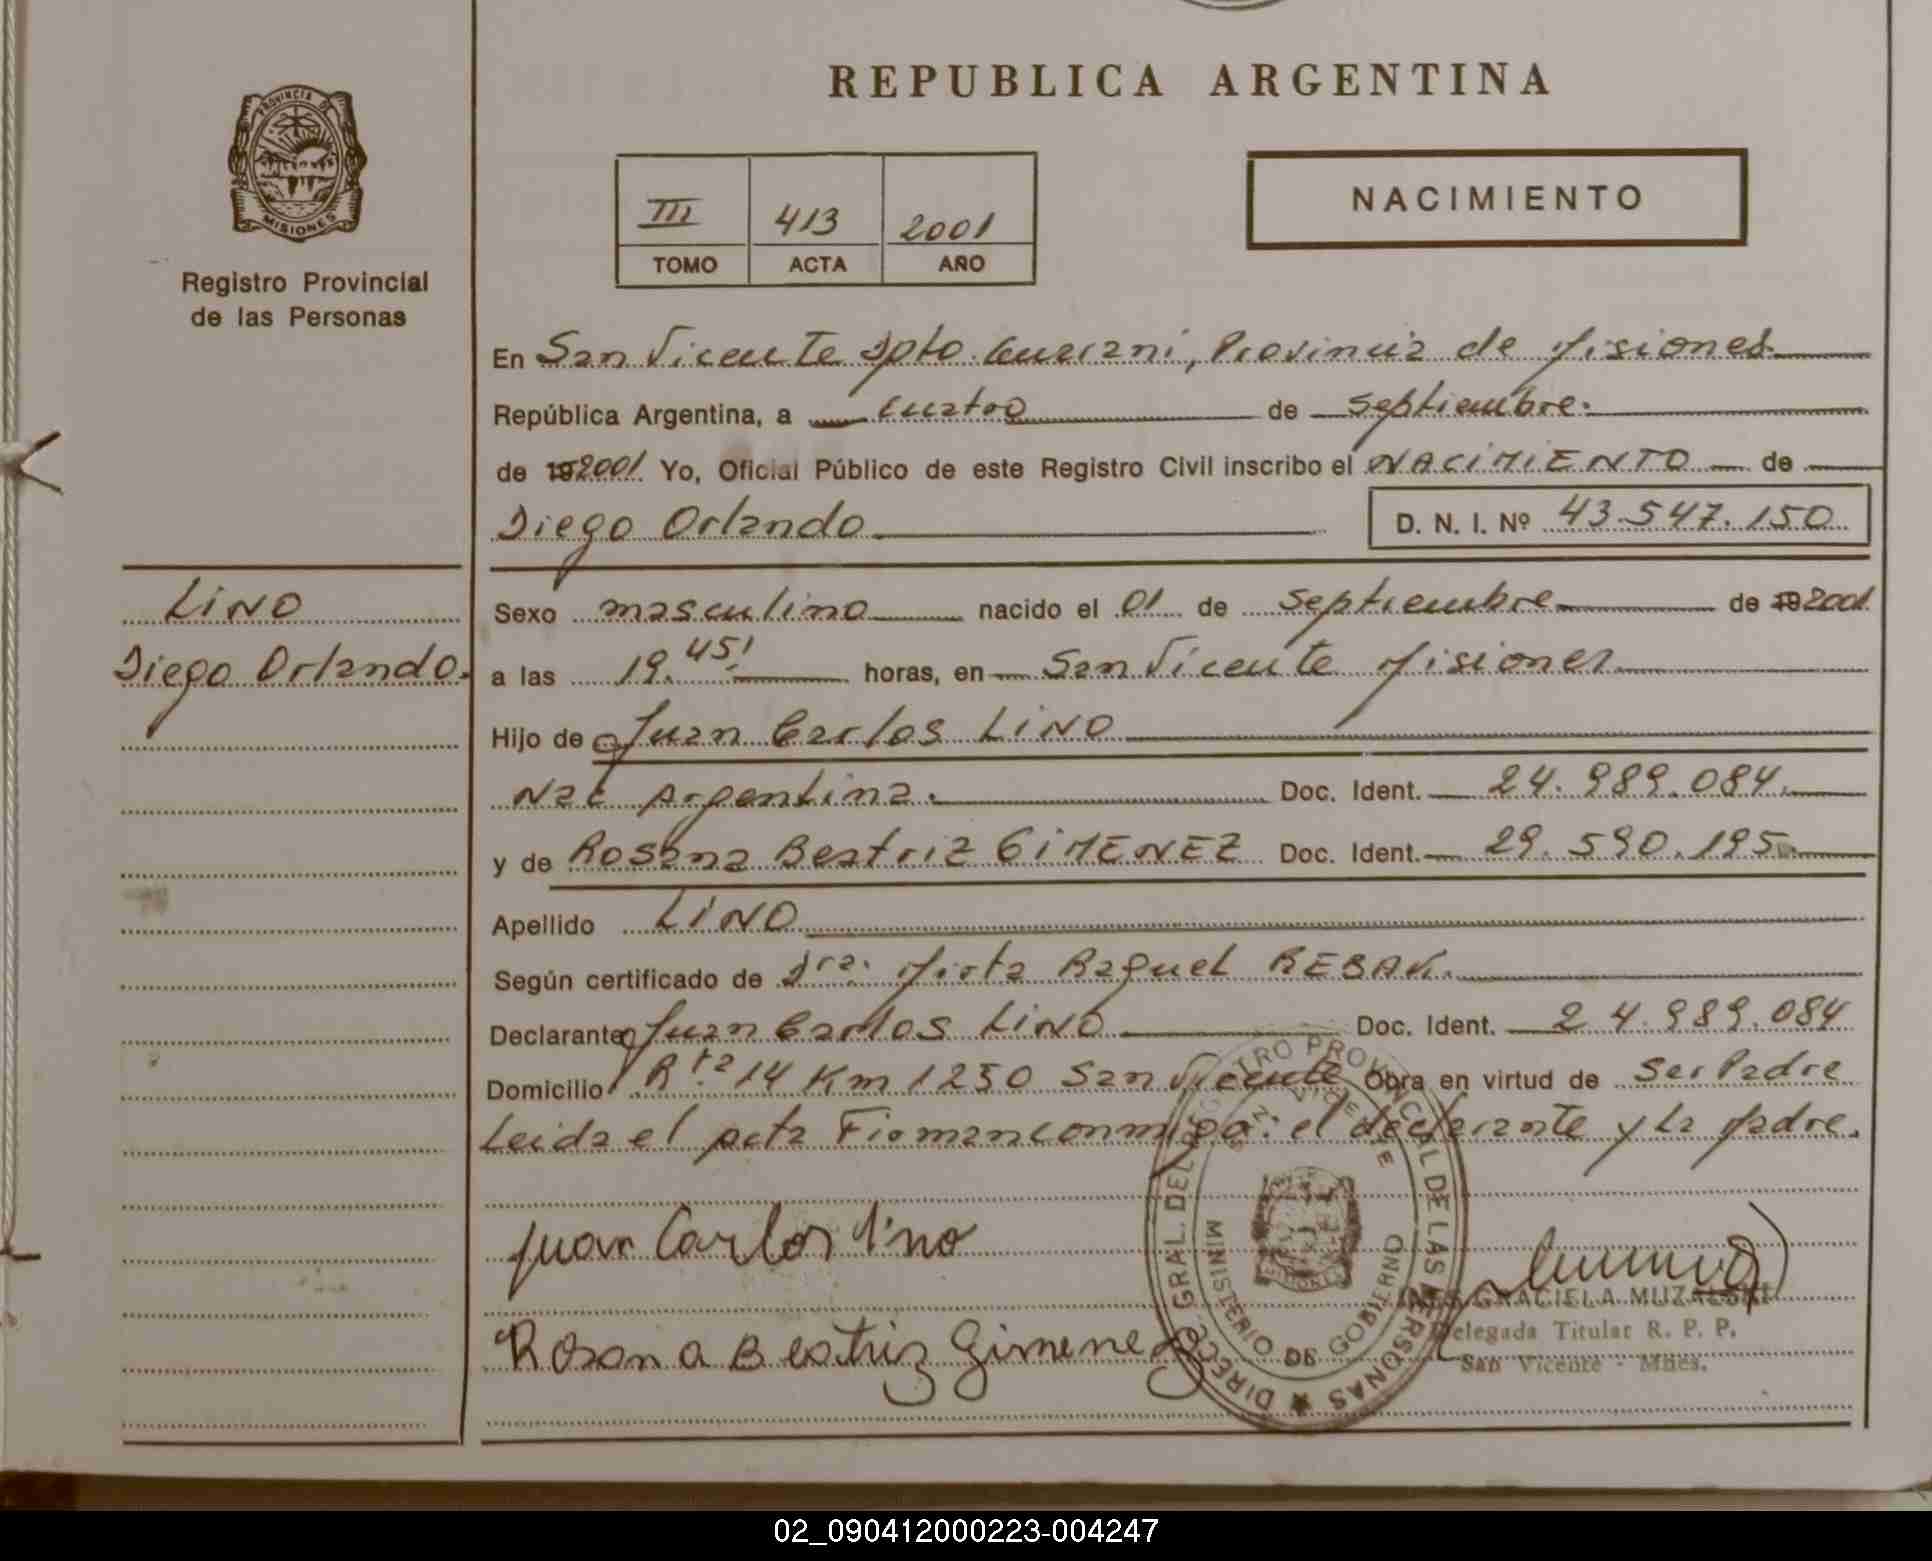 REPUBLICA ARGENTINA
PROVINCIA DE
MISIONES
Registro Provincial
de las Personas
III 413 2001
TOMO ACTA AÑO
NACIMIENTO
En San Vicente Dpto. Guarani, Provincia de Misiones
República Argentina, a cuatro de septiembre.
de 19 2001 Yo, Oficial Público de este Registro Civil inscribo el NACIMIENTO de
Diego Orlando D. N. I. Nº 43.547.150
LINO
Diego Orlando.
Sexo masculino nacido el 01 de septiembre de 19 2001
a las 19.45' horas, en San Vicente Misiones
Hijo de Juan Carlos LINO
Nac Argentina. Doc. Ident. 24.989.084.
y de Rosana Beatriz GIMENEZ Doc. Ident. 29.590.195.
Apellido LINO
Según certificado de Dra. Mirta Raquel
Declarante Juan Carlos LINO Doc. Ident. 24.989.084
Domicilio Rta. 14 Km 1250 San Vicente Obra en virtud de ser Padre
Leida el acta Firman conmigo: el declarante y la Madre.
Juan Carlos lino
Rosana Beatriz Gimenez
DIRECC. GRAL. DEL REGISTRO PROVINCIAL DE LAS PERSONAS
SAN VICENTE
MINISTERIO DE GOBIERNO
GRACIELA MUZALSKI
Delegada Titular R. P. P.
San Vicente - Mnes.
02_090412000223-004247